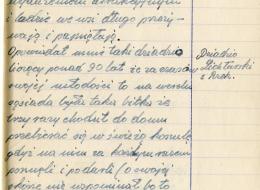 i ludzie we wsi długo przeży-
wają i pamiętają.
Opowiadał mnie taki dziadzio
liczący ponad 90 lat że za czasów
swojej młodości to na weselu
sąsiada była taka bitka że
trzy razy chodził do domu
przebierać się w świeżą koszulę
gdyż na nim za każdym razem
pomięli i podarli (o swojej
nie wspominał bo to
Dziadzio
z Krak.